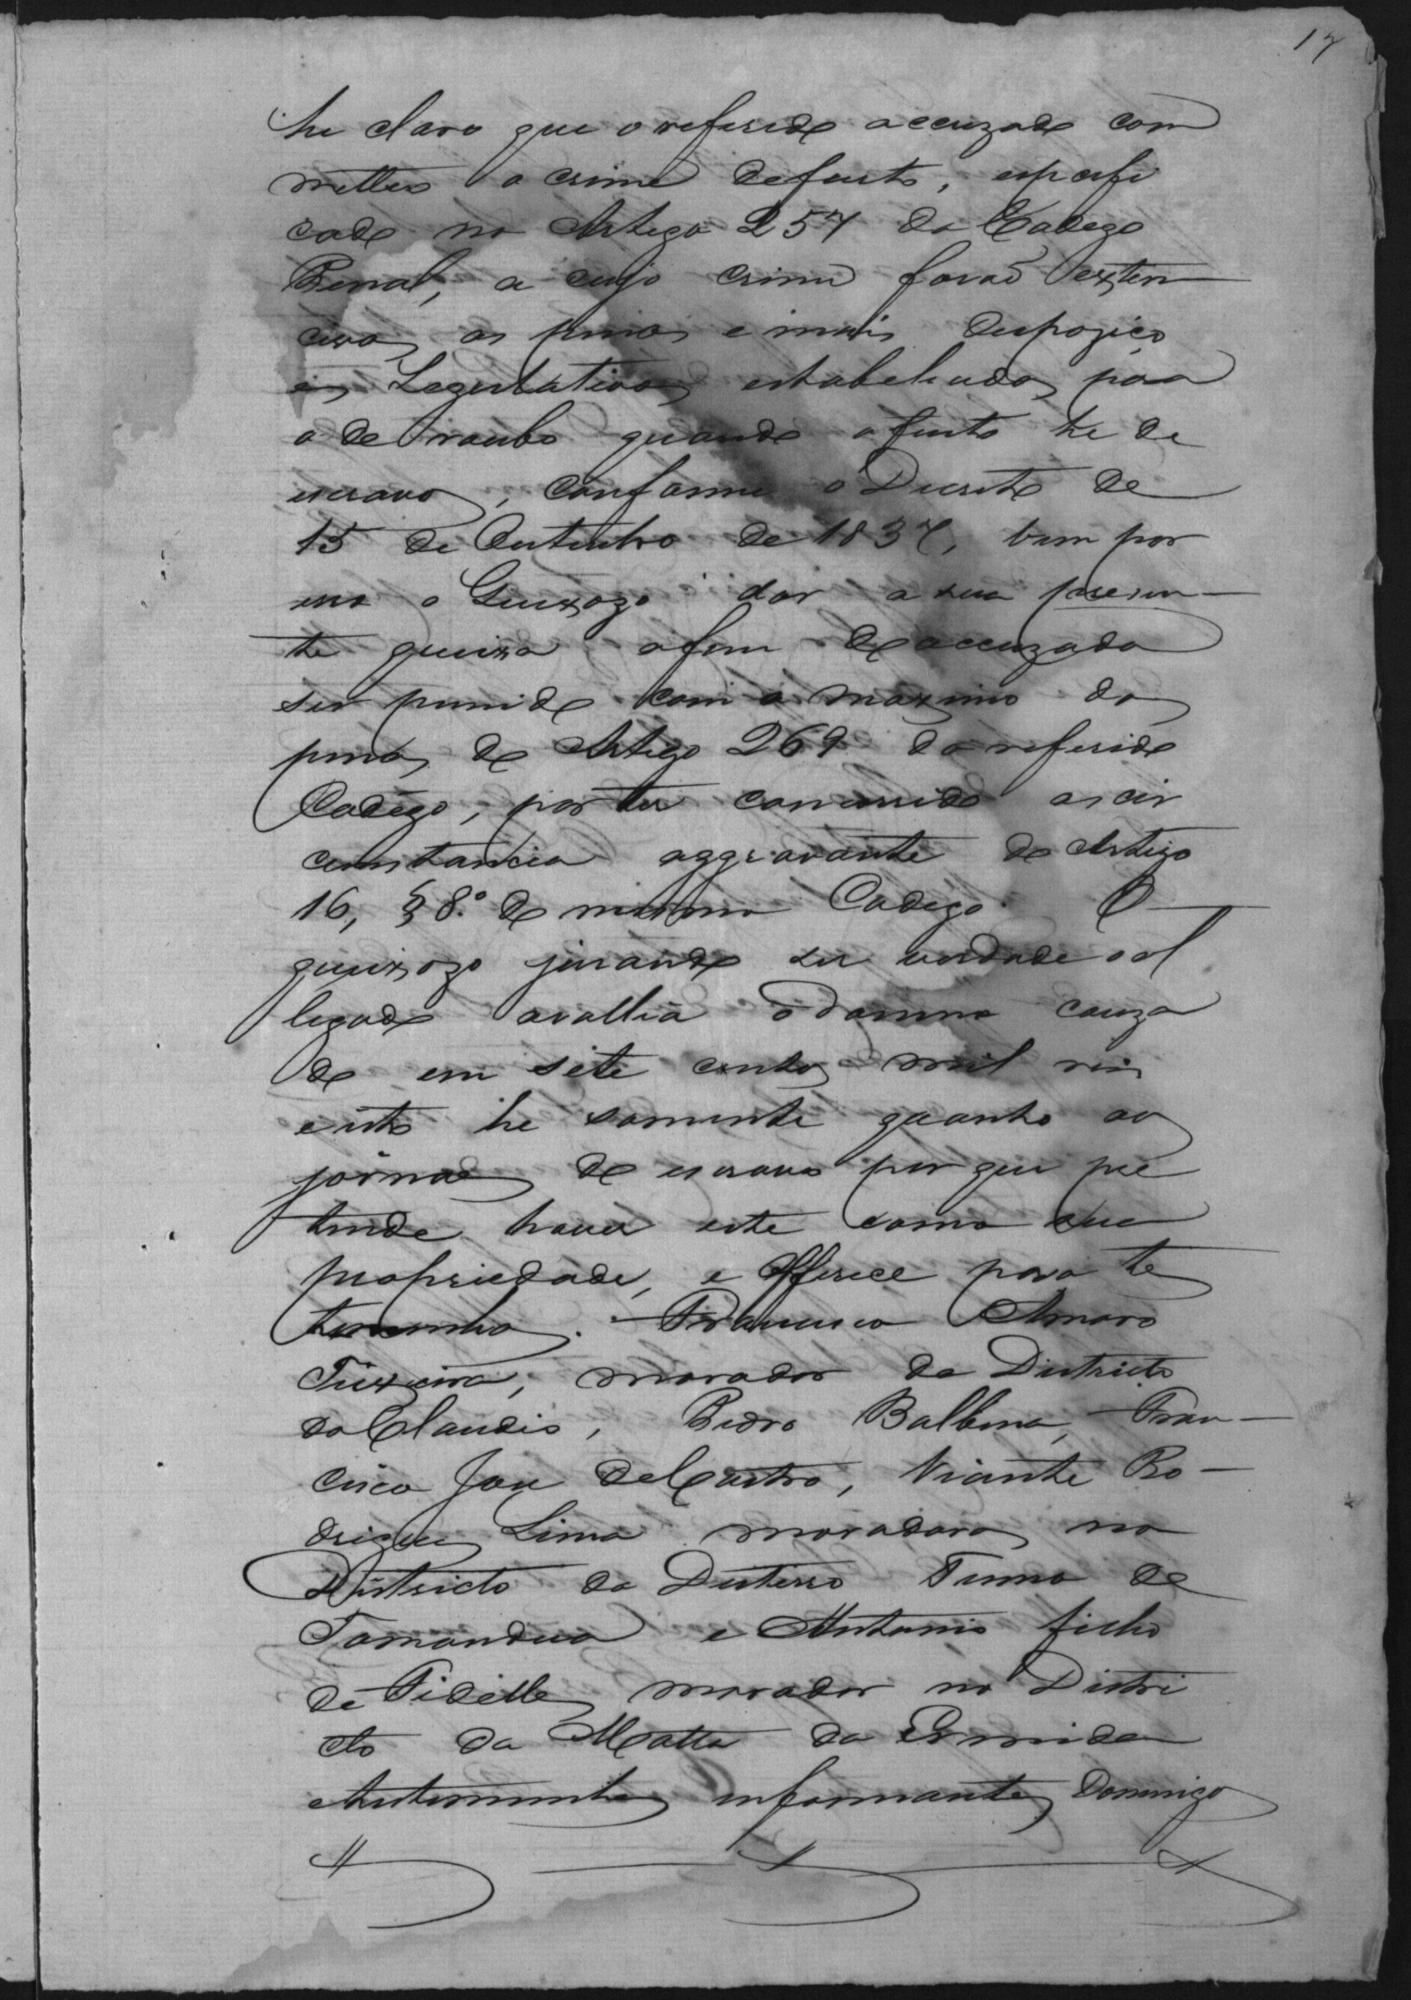 17
he claro que o referido accuzado com
metteo o crime de furto, especifi
cado no Artigo 257 do Codego
Penal, a cujo crime forão exten
civas as penas e mais despoziço
es Legeslativas estabelecidas para
o de roubo quando o furto he de
escravos, conforme o Decreto de
15 de Outubro de 1837, vem por
isso o Queixozo dar a sua prezen
te queixa afim do accuzado
ser punido com o maximo das
penas do Artigo 269 do referido
Codego, por ter concorrido a cir
cunstancia aggravante do Artigo
16, § 8.º do mesmo Codego. O
queixozo jurando ser verdade o al
legado avallia o damno cauza
do em sete centos mil reis
e isto he somente quanto aos
jornaes do escravo por que pre
tende haver este como sua
propriedade, e offerece para tes
temunhas. Francisco Amaro
Teixeira, morador do Districto
do Claudio, Pedro Balbino, Fran
cisco Joze de Castro, Vicente Ro
drigues Lima moradores no
Districto do Desterro Termo de
Tamanduá e Antonio filho
de Fidelles morador no Distri
cto da Matta da Ermida
Astemunhas informantes Domingos